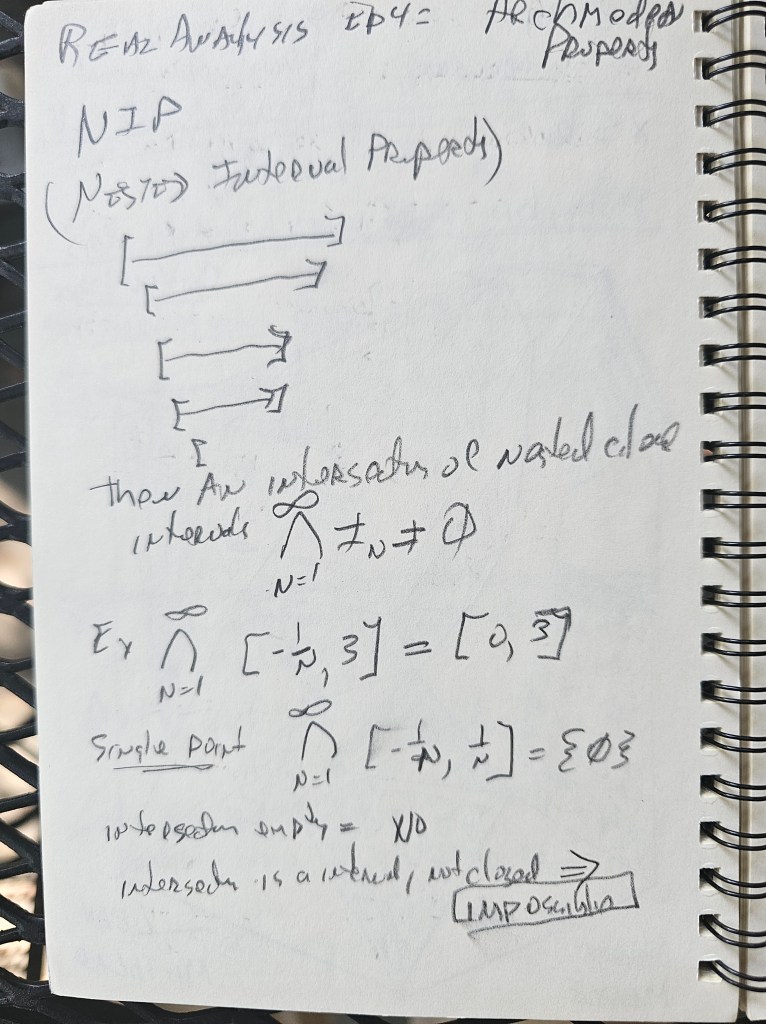 REAL ANALYSIS EP4 = Archmedean
Property
NIP
(NESTED Interval Property)
then An intersection of nested close
intervals ∞⋂N=1 I_N ≠ ∅
Ex ∞⋂N=1 [-1/N, 3] = [0, 3]
Single point ∞⋂N=1 [-1/N, 1/N] = {∅}
intersection empty =
intersection is a interval, not closed ⇒
IMPOSSible